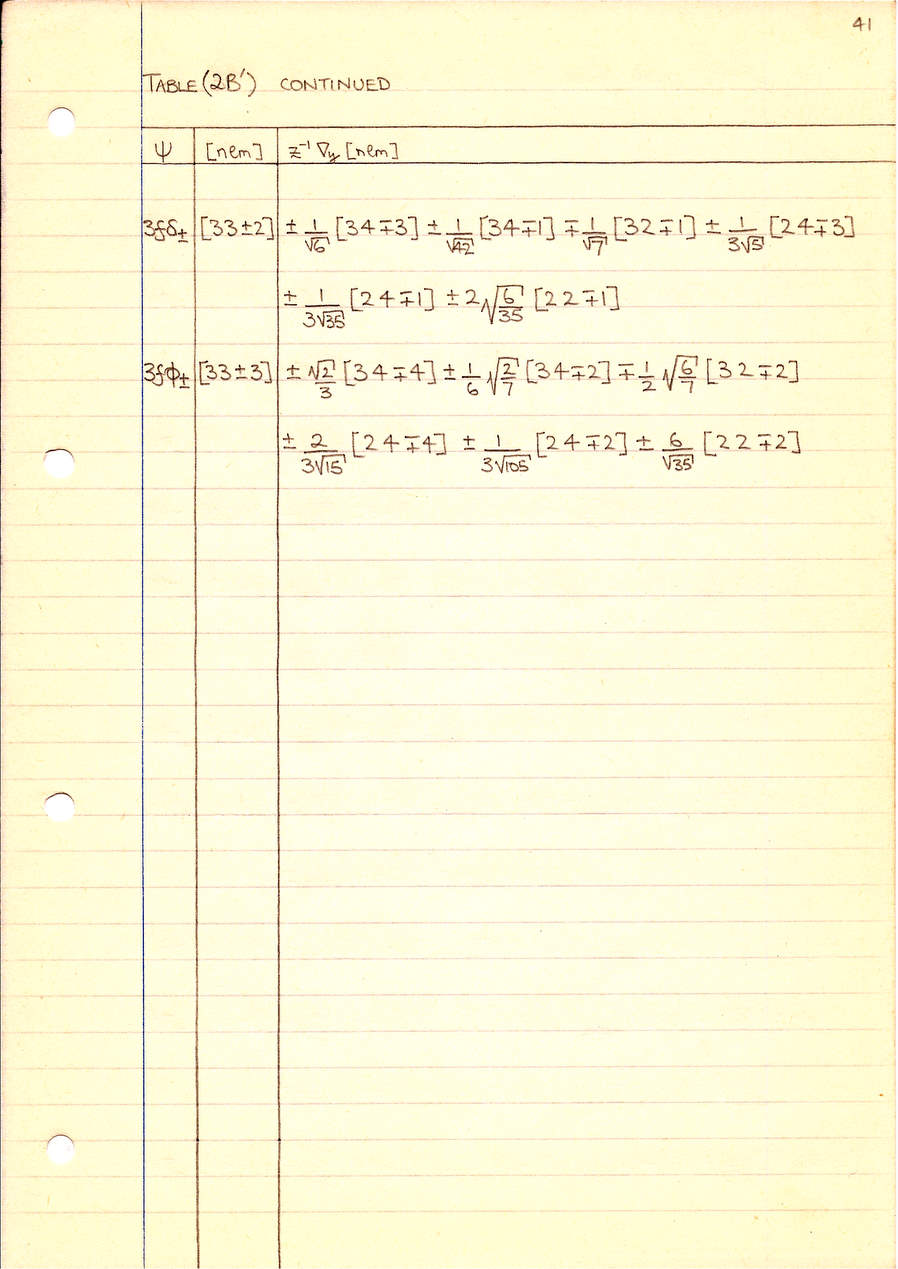 41
TABLE (2B′) CONTINUED
Ψ [nℓm] z⁻¹ ∇y [nℓm]
3fδ± [33±2] ± 1/√6 [34∓3] ± 1/√42 [34∓1] ∓ 1/√7 [32∓1] ± 1/3√5 [24∓3]
± 1/3√35 [24∓1] ± 2√(6/35) [22∓1]
3fφ± [33±3] ± √2/3 [34∓4] ± 1/6 √(2/7) [34∓2] ∓ 1/2 √(6/7) [32∓2]
± 2/3√15 [24∓4] ± 1/3√105 [24∓2] ± 6/√35 [22∓2]